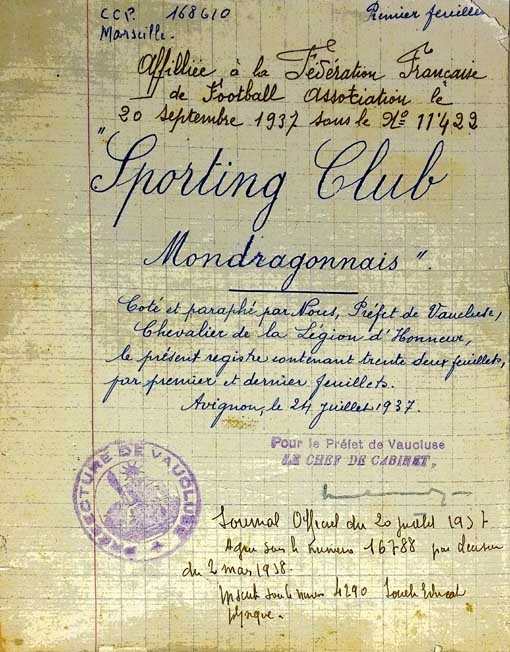 CCP. 168610
Marseille.
Premier feuillet
Affilliée à la Fédération Française
de Football Association le
20 septembre 1937 sous le No 11422
"Sporting Club
Mondragonnais".
Coté et paraphé par Nous, Préfet de Vaucluse,
Chevalier de la Légion d'Honneur,
le présent registre contenant trente deux feuillets,
par premier et dernier feuillets.
Avignon, le 24 juillet 1937.
Pour le Préfet de Vaucluse
LE CHEF DE CABINET,
PREFECTURE DE VAUCLUSE
Journal Officiel du 20 juillet 1937
Agree sous le numero 16788 par decision
du 2 mars 1938.
Inscrit sous le numero 4290